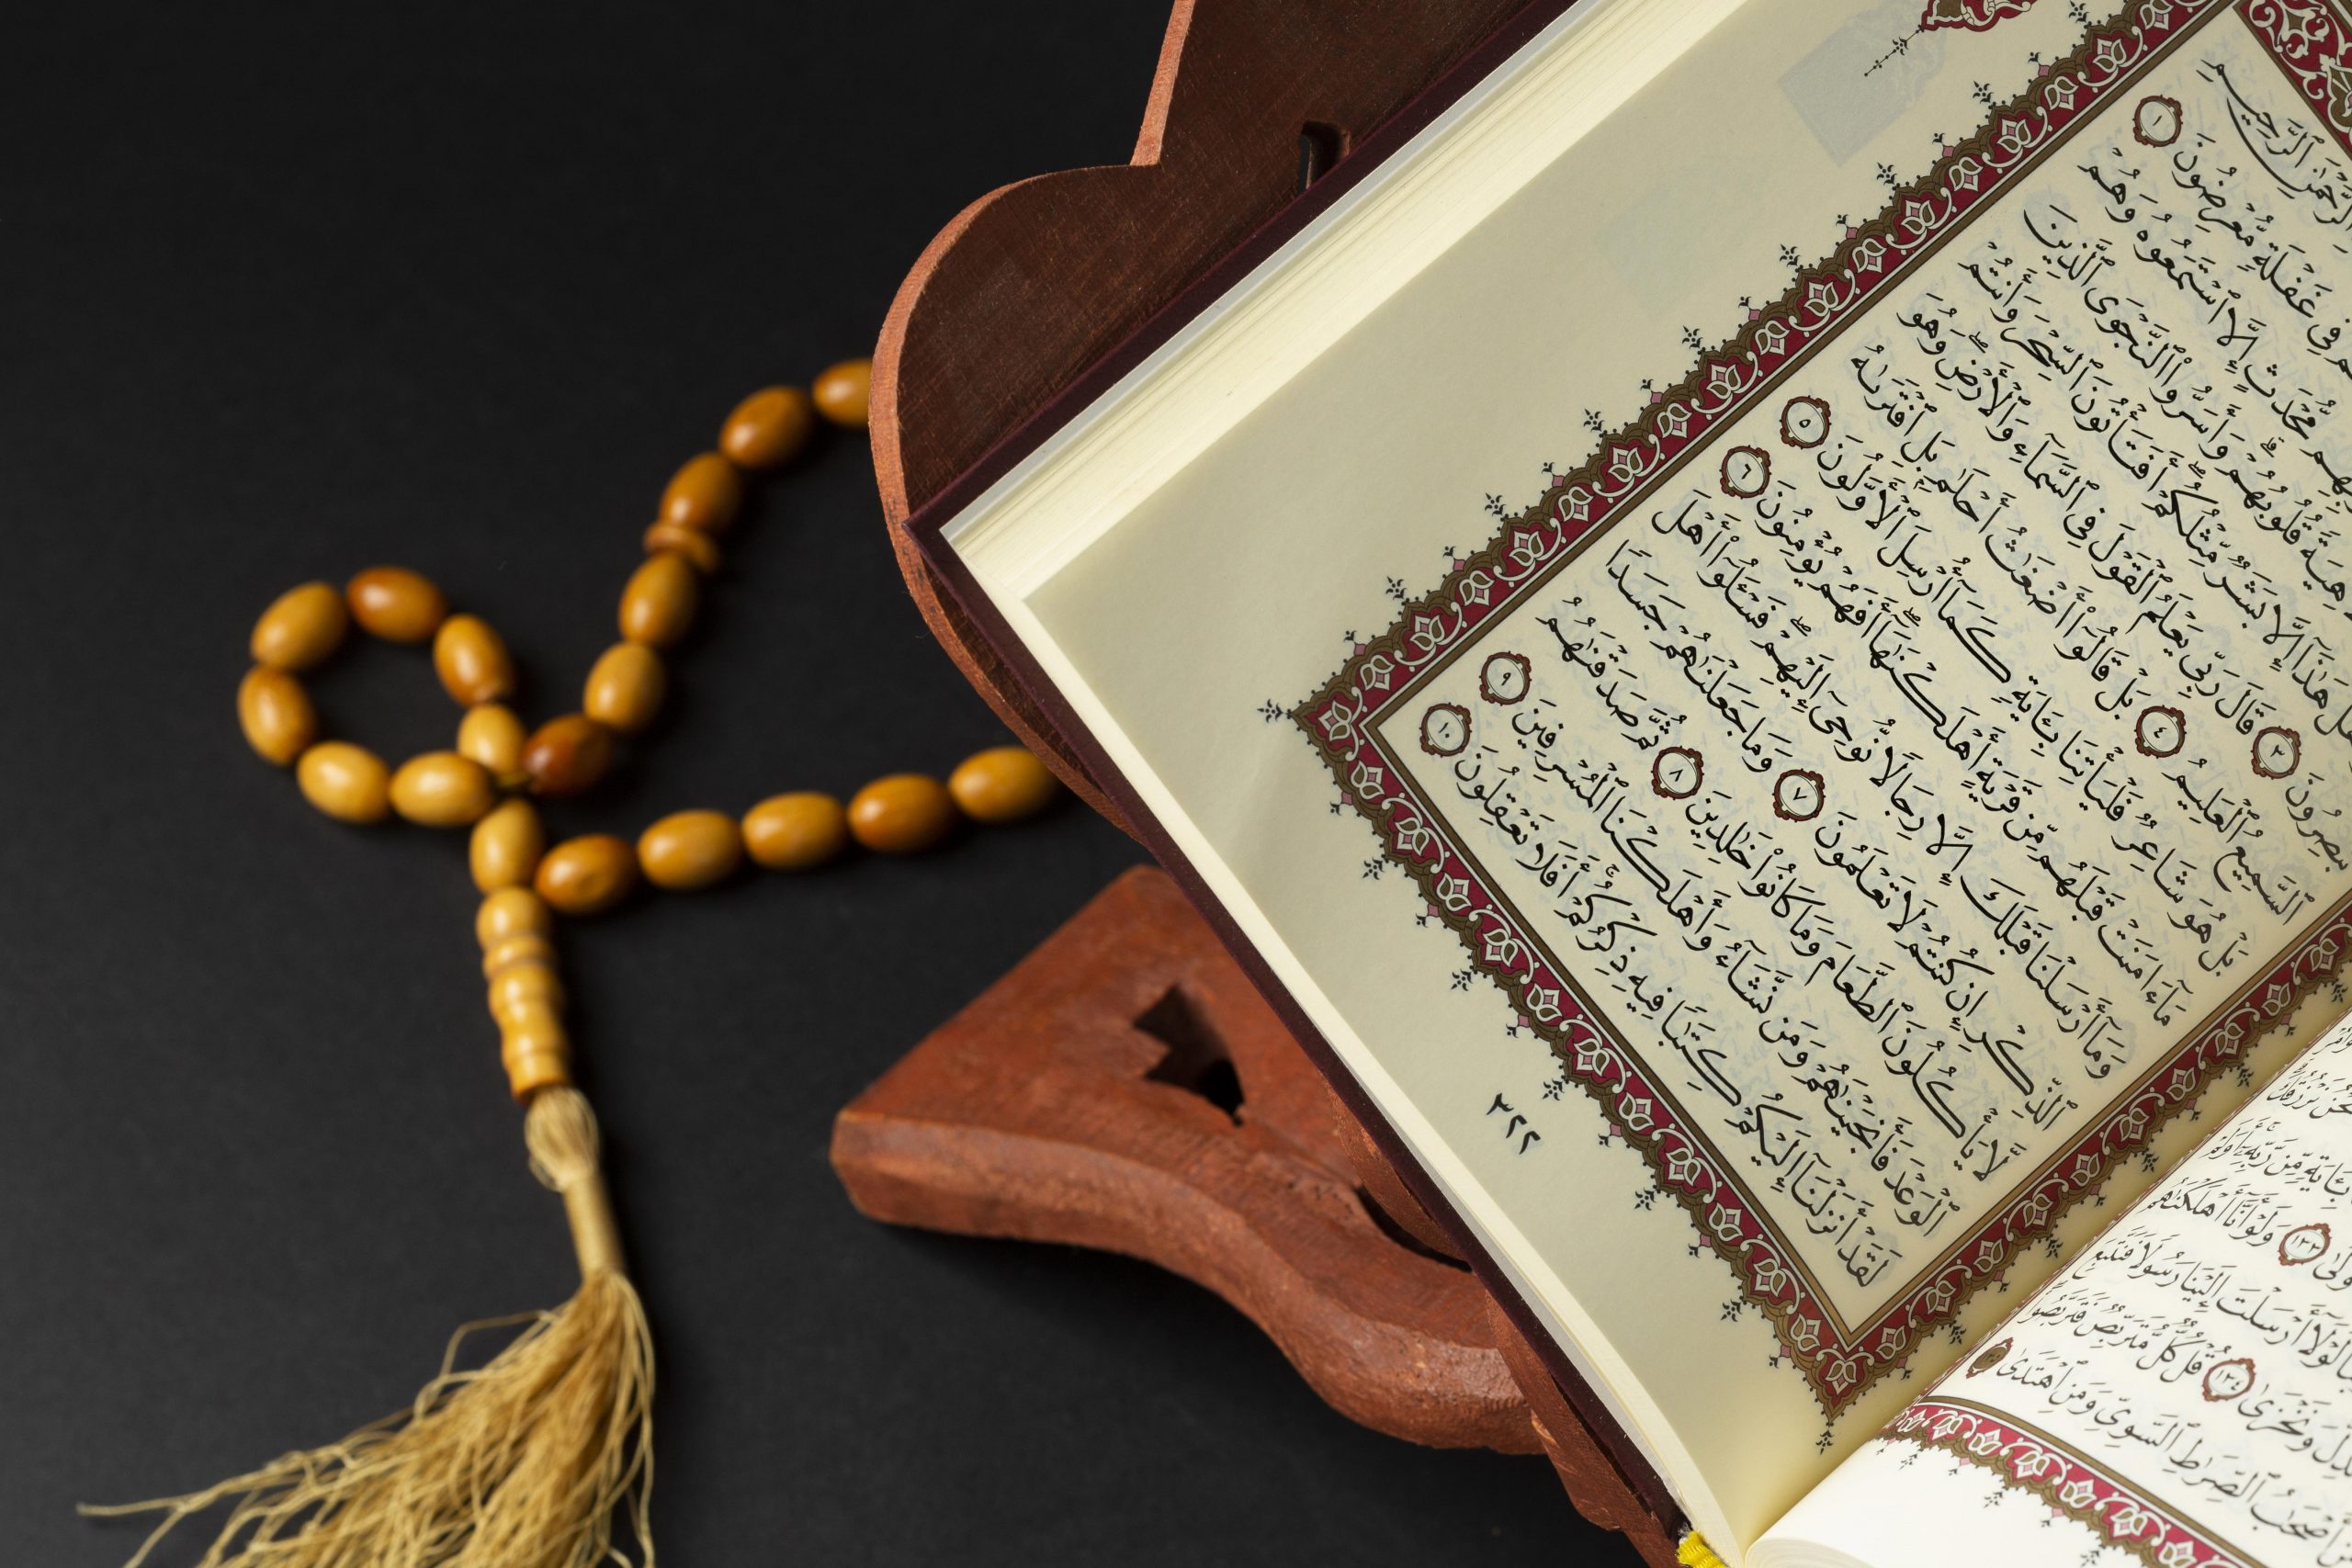 ٱلرَّحْمَٰنِ ٱلرَّحِيمِ
فِى غَفْلَةٍ مُّعْرِضُونَ ١
مُّحْدَثٍ إِلَّا ٱسْتَمَعُوهُ وَهُمْ
قُلُوبُهُمْ ۗ وَأَسَرُّوا۟ ٱلنَّجْوَى ٱلَّذِينَ
هَٰذَآ إِلَّا بَشَرٌ مِّثْلُكُمْ ۖ أَفَتَأْتُونَ ٱلسِّحْرَ وَأَنتُمْ
تُبْصِرُونَ ٣ قَالَ رَبِّى يَعْلَمُ ٱلْقَوْلَ فِى ٱلسَّمَآءِ وَٱلْأَرْضِ ۖ وَهُوَ
ٱلسَّمِيعُ ٱلْعَلِيمُ ٤ بَلْ قَالُوٓا۟ أَضْغَٰثُ أَحْلَٰمٍۭ بَلِ ٱفْتَرَىٰهُ
بَلْ هُوَ شَاعِرٌ فَلْيَأْتِنَا بِـَٔايَةٍ كَمَآ أُرْسِلَ ٱلْأَوَّلُونَ ٥
مَآ ءَامَنَتْ قَبْلَهُم مِّن قَرْيَةٍ أَهْلَكْنَٰهَآ ۖ أَفَهُمْ يُؤْمِنُونَ ٦
وَمَآ أَرْسَلْنَا قَبْلَكَ إِلَّا رِجَالًا نُّوحِىٓ إِلَيْهِمْ ۖ فَسْـَٔلُوٓا۟ أَهْلَ
ٱلذِّكْرِ إِن كُنتُمْ لَا تَعْلَمُونَ ٧ وَمَا جَعَلْنَٰهُمْ جَسَدًا
لَّا يَأْكُلُونَ ٱلطَّعَامَ وَمَا كَانُوا۟ خَٰلِدِينَ ٨ ثُمَّ صَدَقْنَٰهُمُ
ٱلْوَعْدَ فَأَنجَيْنَٰهُمْ وَمَن نَّشَآءُ وَأَهْلَكْنَا ٱلْمُسْرِفِينَ ٩
لَقَدْ أَنزَلْنَآ إِلَيْكُمْ كِتَٰبًا فِيهِ ذِكْرُكُمْ ۖ أَفَلَا تَعْقِلُونَ ١٠
٣٢٢
بِـَٔايَةٍ مِّن رَّبِّهِۦٓ ۚ أَوَلَمْ
١٣٣ وَلَوْ أَنَّآ أَهْلَكْنَٰهُم
لَوْلَآ أَرْسَلْتَ إِلَيْنَا رَسُولًا فَنَتَّبِعَ
وَنَخْزَىٰ ١٣٤ قُلْ كُلٌّ مُّتَرَبِّصٌ فَتَرَبَّصُوا۟
أَصْحَٰبُ ٱلصِّرَٰطِ ٱلسَّوِىِّ وَمَنِ ٱهْتَدَىٰ